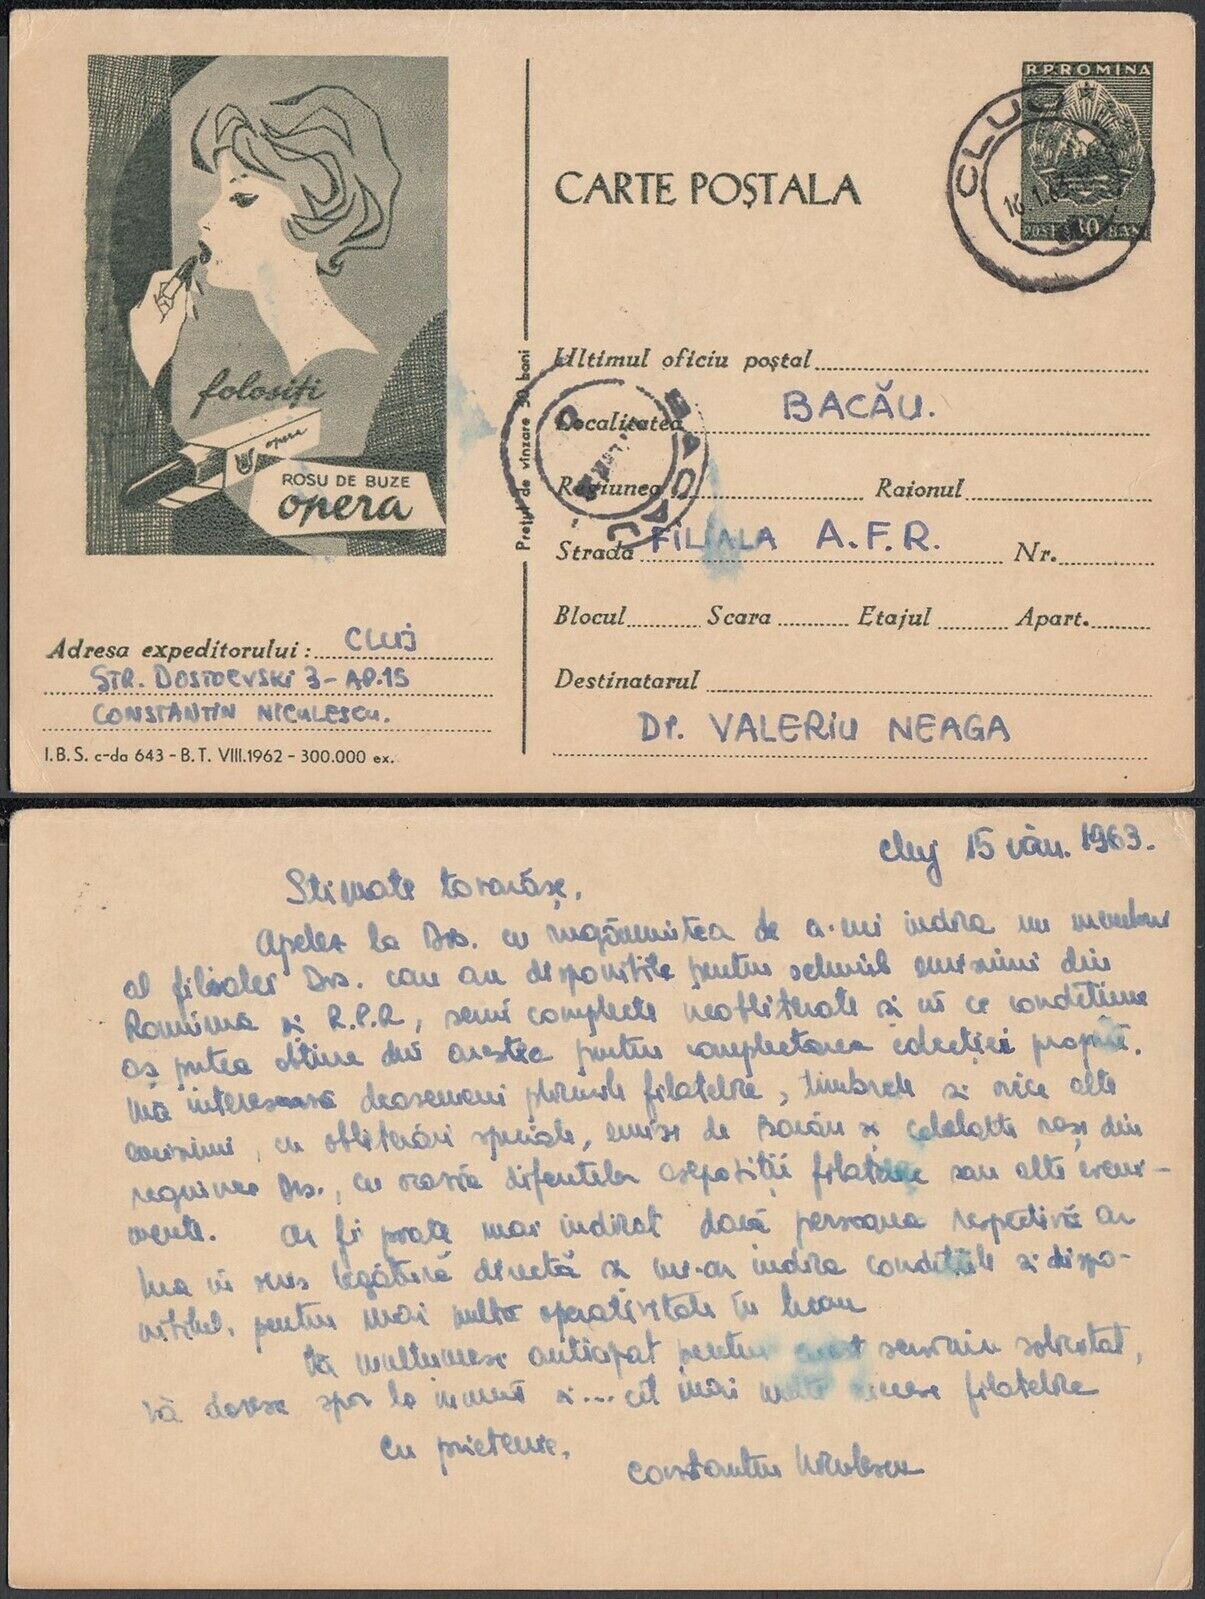 folosiți
opera
ROSU DE BUZE
opera
Adresa expeditorului: CLUJ
STR. DOSTOEVSKI 3-AP.15
CONSTANTIN NICULESCU.
I.B.S. c-da 643 - B.T. VIII.1962 - 300.000 ex.
Prețul de vînzare 30 bani
CARTE POȘTALA
R.P.ROMINA
CLUJ
Ultimul oficiu poștal
Localitatea BACĂU.
Regiunea Raionul
Strada FILIALA A.F.R. Nr.
Blocul Scara Etajul Apart.
Destinatarul
Dr. VALERIU NEAGA
BACAU
Cluj 15 ian. 1963.
Stimate tovarășe,
Apelez la Dvs. cu rugămintea de a-mi indica un membru
al filialei Dvs. care are disponibile pentru schimb emisiuni din
Romînia și R.P.R, serii complecte neobliterate și în ce condițiuni
aș putea obține din acestea pentru complectarea colecției proprii.
Mă interesează deasemeni plicurile filatelice, timbrele și orice alte
emisiuni, cu obliterări speciale, emise de Bacău și celelalte orașe din
regiunea Dvs., cu ocazia diferitelor expoziții filatelice sau alte eveni-
mente. Ar fi poate mai indicat dacă persoana respectivă ar
lua în scris legătură directă și mi-ar indica condițiile și dispo-
nibilul, pentru mai multă operativitate în
Vă mulțumesc anticipat pentru acest serviciu solicitat,
Vă doresc spor la muncă și... cît mai multe succese filatelice
Cu prietenie,
Constantin Niculescu